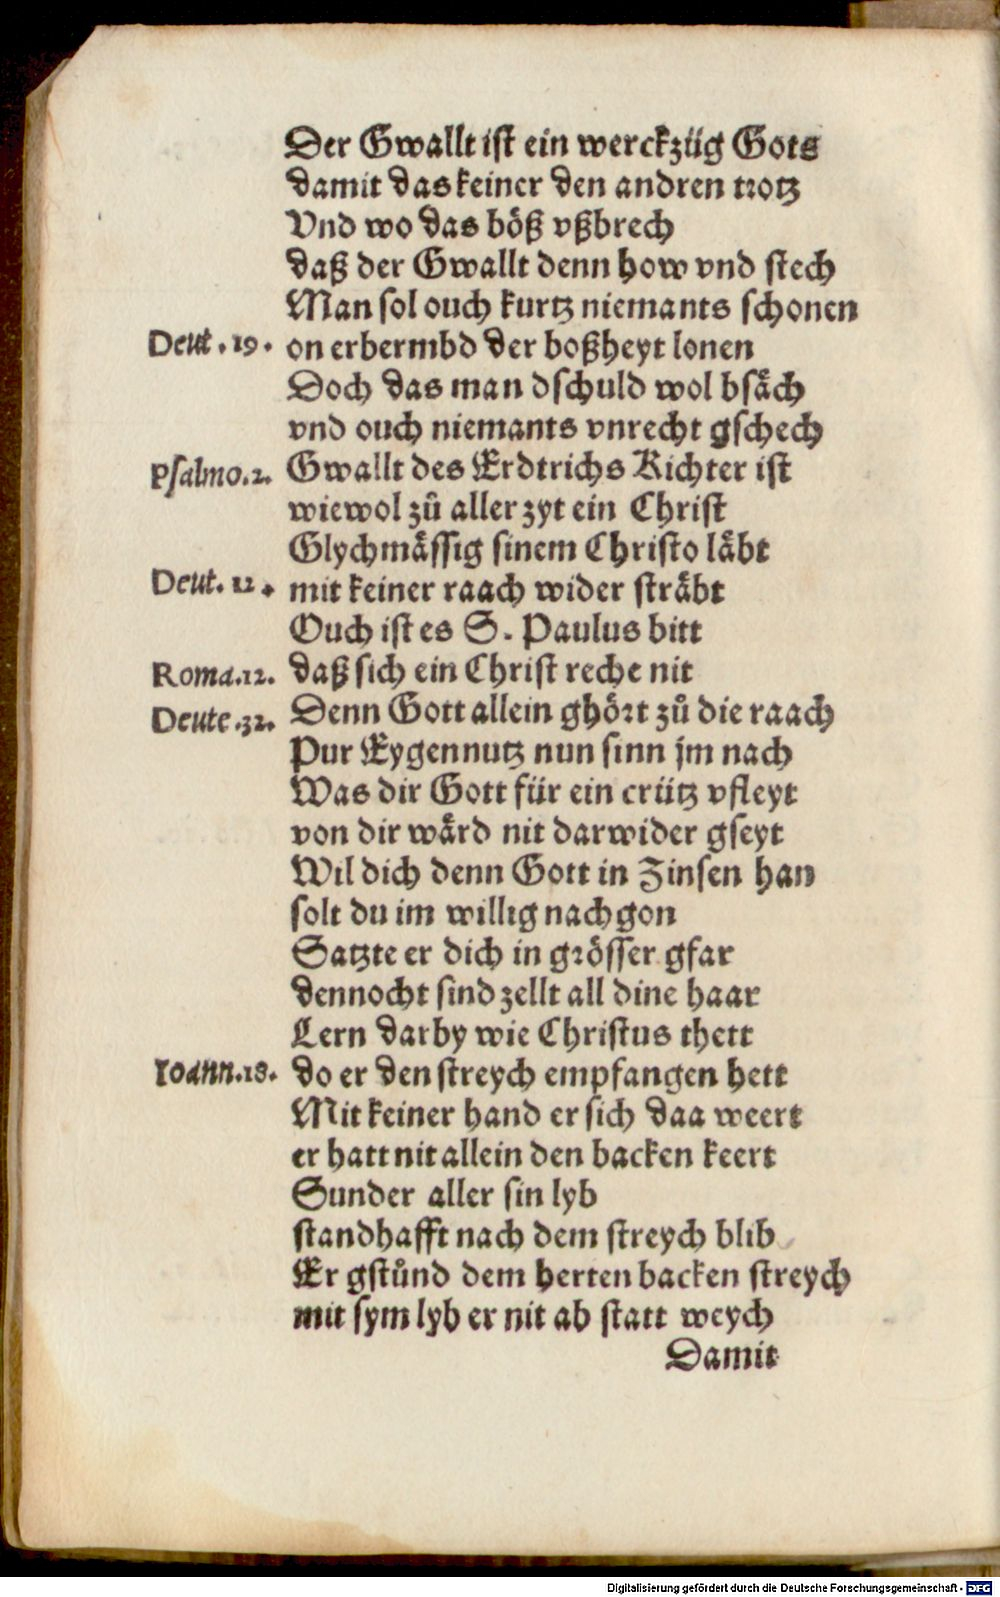 Der Gwallt ist ein werckzüg Gots
damit das keiner den andren trotz
Vnd wo das böß vßbrech
daß der Gwallt denn how vnd stech
Man sol ouch kurtz niemants schonen
Deut. 19. on erbermbd der boßheyt lonen
Doch das man dschuld wol bsäch
vnd ouch niemants vnrecht gschech
Psalmo. 2. Gwallt des Erdtrichs Richter ist
wiewol zů aller zyt ein Christ
Glychmässig sinem Christo läbt
Deut. 12. mit keiner raach wider sträbt
Ouch ist es S. Paulus bitt
Roma. 12. daß sich ein Christ reche nit
Deute. 32. Denn Gott allein ghört zů die raach
Pur Eygennutz nun sinn jm nach
Was dir Gott für ein crütz vfleyt
von dir wärd nit darwider gseyt
Wil dich denn Gott in Zinsen han
solt du im willig nachgon
Satzte er dich in grösser gfar
dennocht sind zellt all dine haar
Lern darby wie Christus thett
Ioann. 18. do er den streych empfangen hett
Mit keiner hand er sich daa weert
er hatt nit allein den backen keert
Sunder aller sin lyb
standhafft nach dem streych blib
Er gstůnd dem herten backen streych
mit sym lyb er nit ab statt weych
Damit
Digitalisierung gefördert durch die Deutsche Forschungsgemeinschaft - DFG